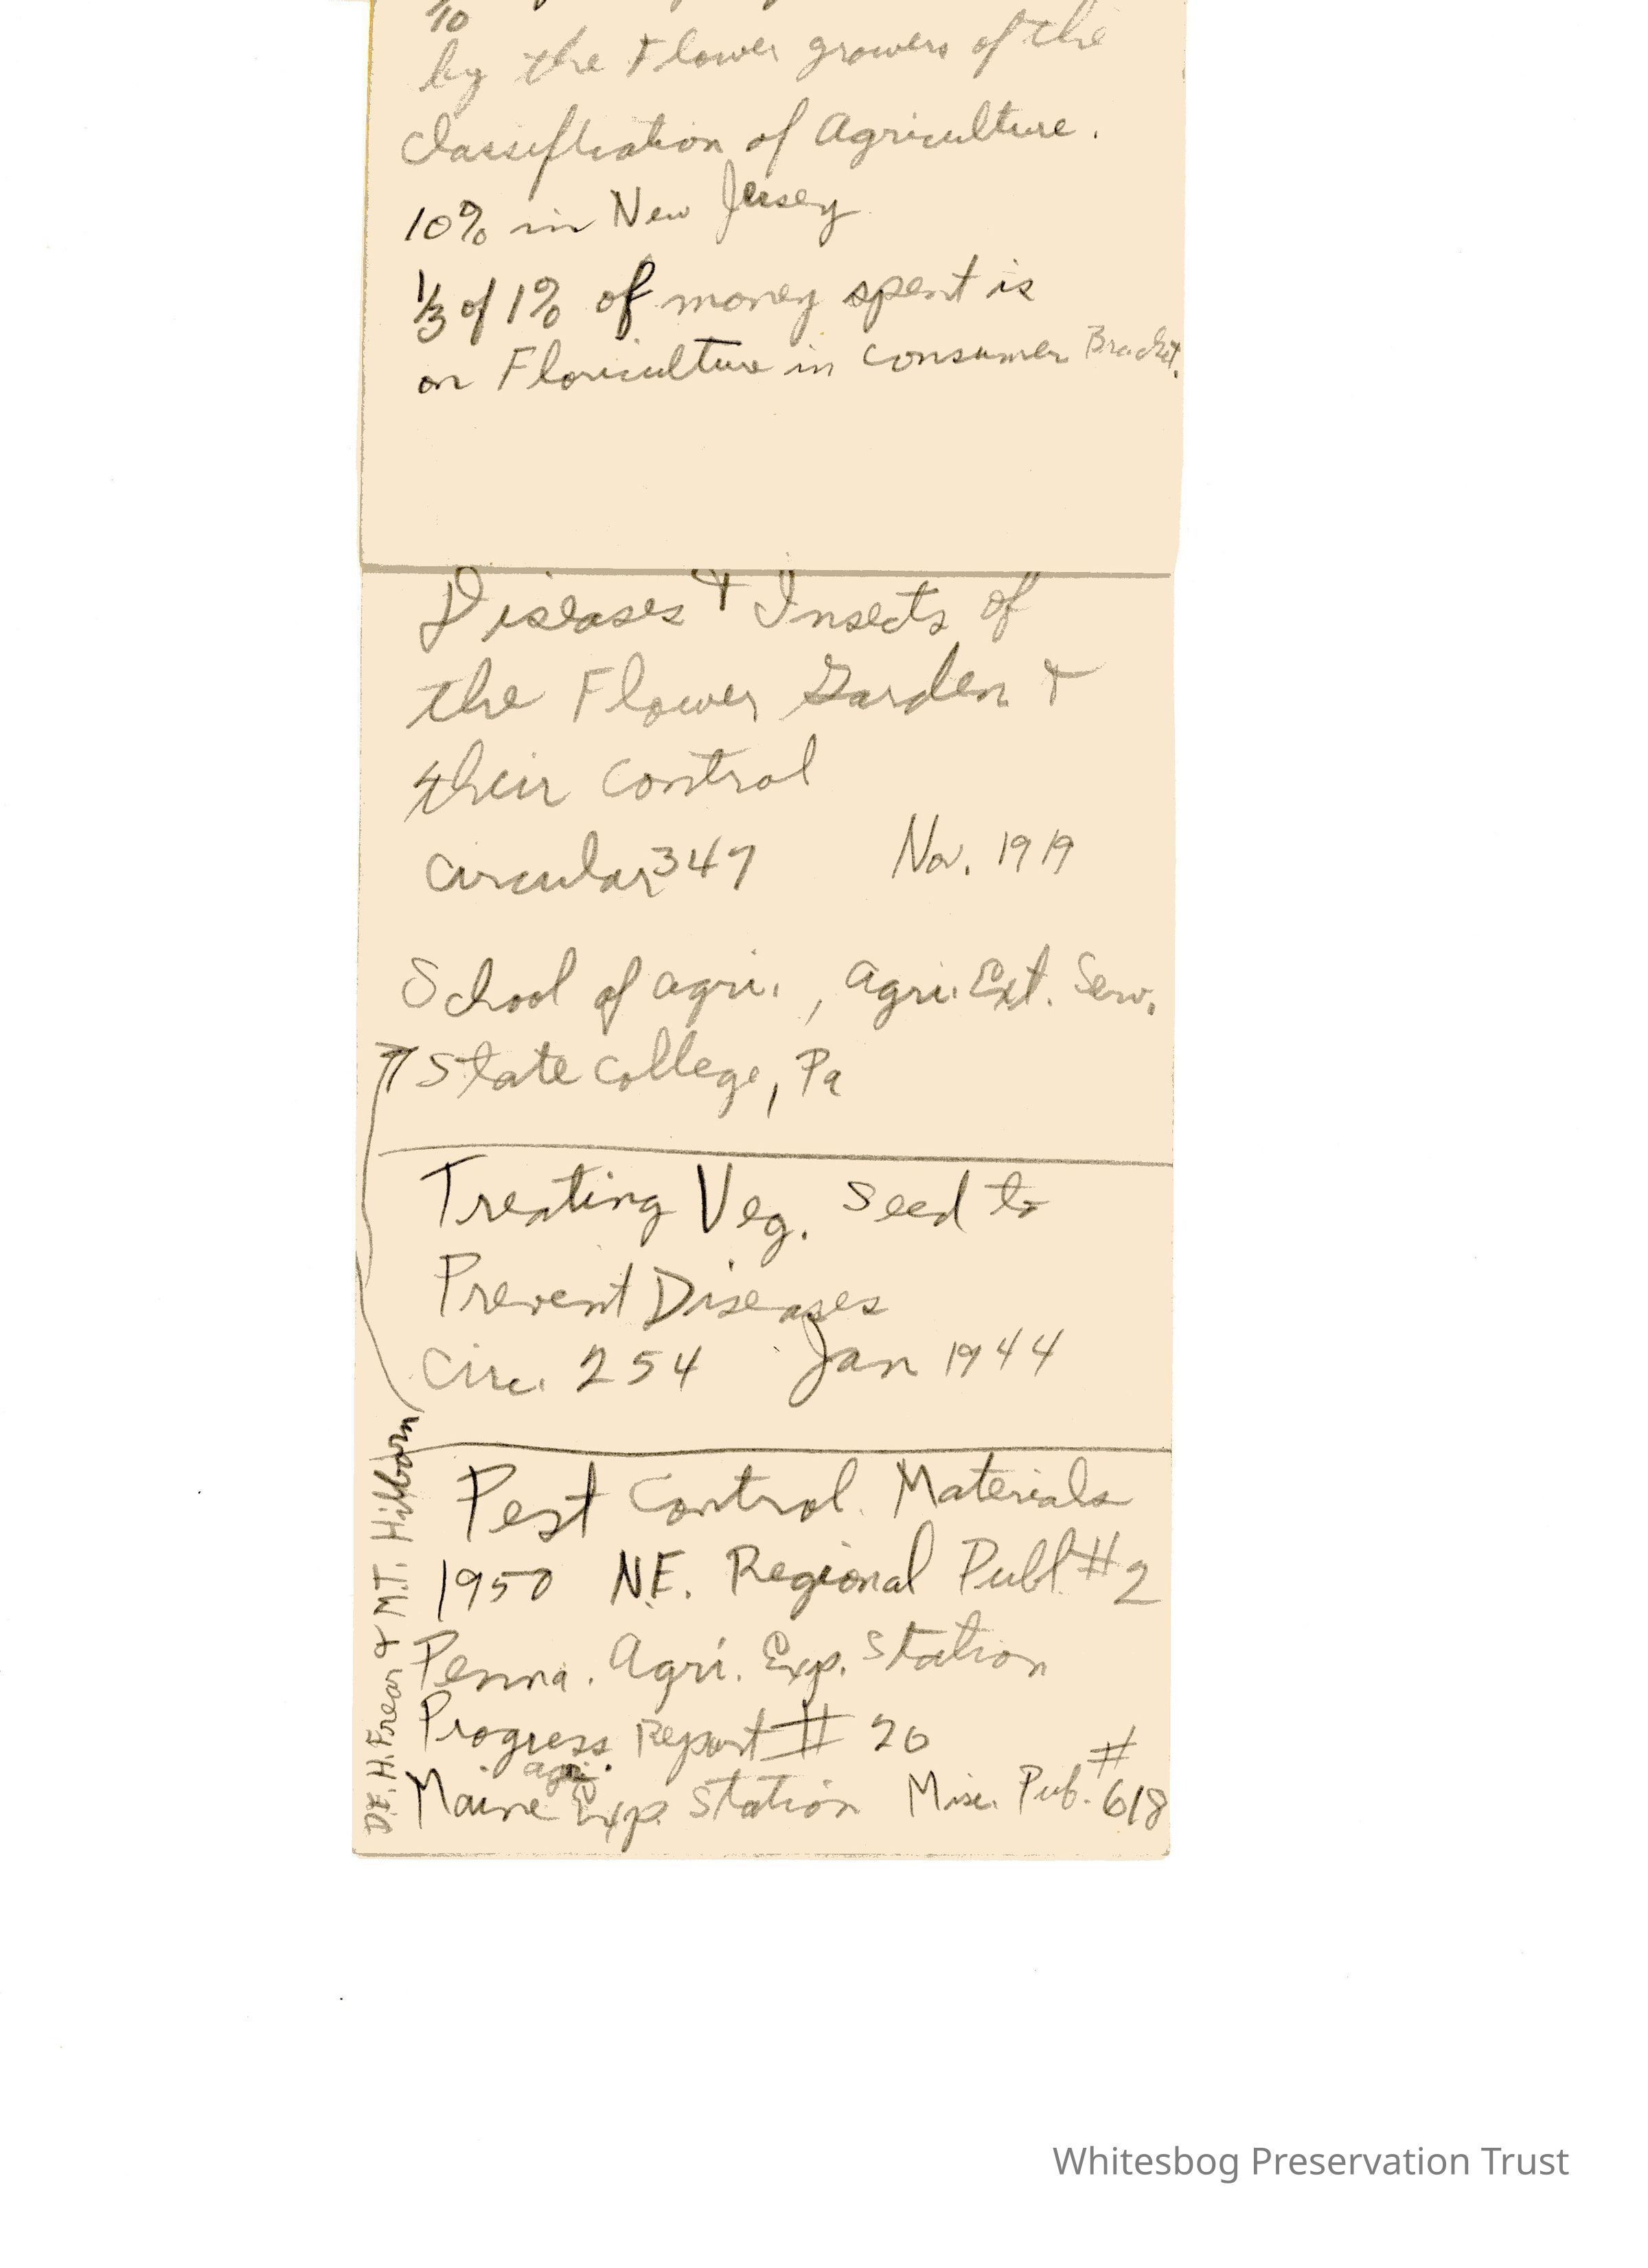 1/10
by the Flower growers of the
Classification of Agriculture.
10% in New Jersey
1/3 of 1% of money spent is
on Floriculture in consumer Bracket.
Diseases & Insects of
the Flower Garden &
their control
Circular 347 Nov. 1919
School of agri., Agri. Ext. Serv.
State College, Pa
Treating Veg. Seed to
Prevent Diseases
Circ. 254 Jan 1944
Pest Control Materials
1950 N.E. Regional Publ #2
Penna. Agri. Exp. Station
Progress Report # 20
Maine agri. Exp. Station Misc. Pub. #618
D.E.H. Frear & M.T. Hilborn
Whitesbog Preservation Trust